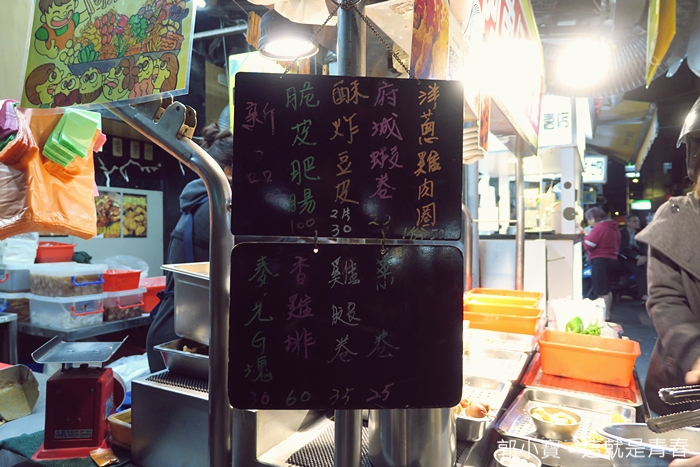 新品
脆皮肥腸 100
酥炸豆皮 2片 30
府城蝦卷
洋蔥雞肉圈
麥克G塊
香雞排 60
雞腿卷 35
菜卷 25
郭小寶。這就是青春